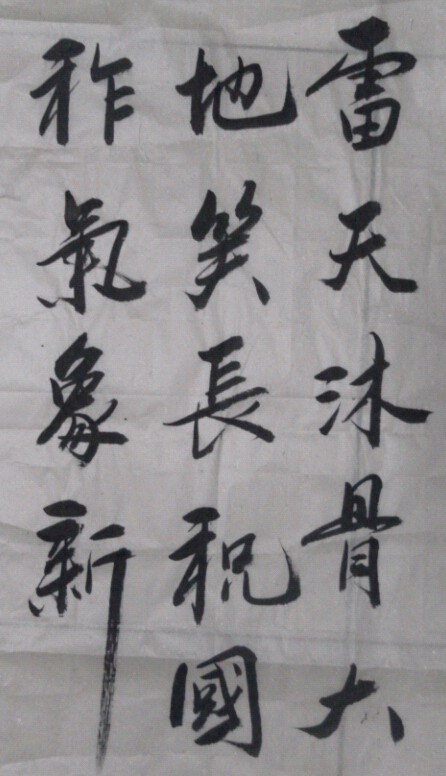 雷天沐骨大
地笑長祝國
祚氣象新